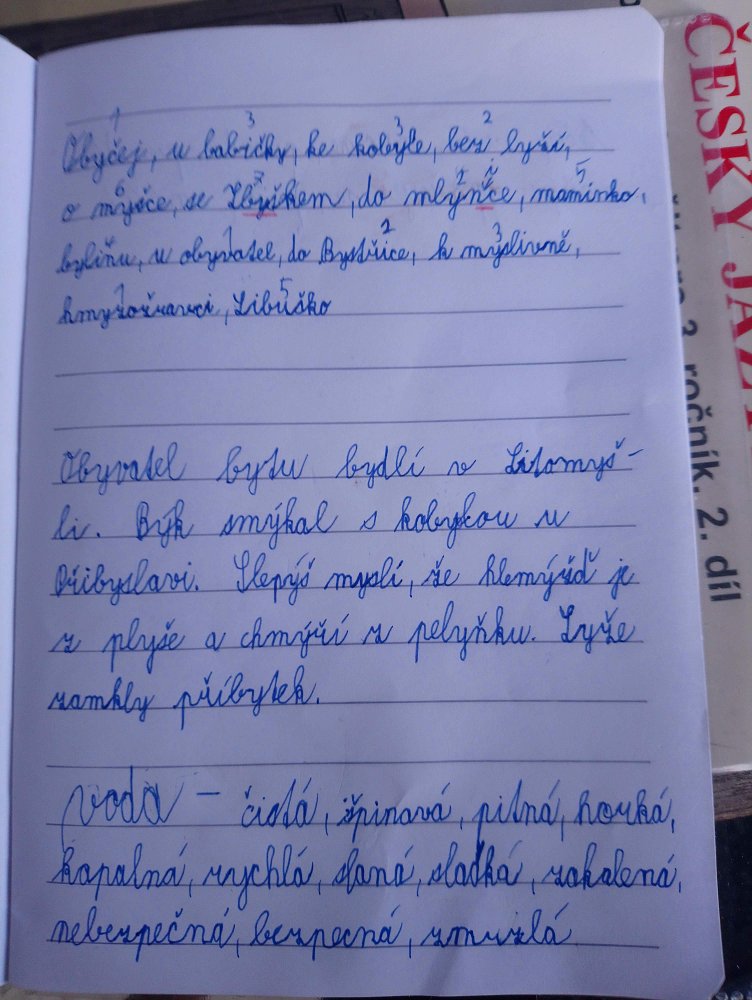 Obyčej, u babičky, ke kobyle, bez lyží,
1 3 3 2
o myšce, se Zbyškem, do mlýnce, maminko,
6 7 2 2 5
bylinu, u obyvatel, do Bystřice, k myslivně,
1 2 3
hmyzožravci, Libuško
1 5
Obyvatel bytu bydlí v Litomyš-
li. Býk smýkal s kobylou u
Přibyslavi. Slepýš myslí, že hlemýžď je
z plyše a chmýří z pelyňku. Lyže
zamkly příbytek.
voda – čistá, špinavá, pitná, horká,
kapalná, rychlá, slaná, sladká, zakalená,
nebezpečná, bezpecná, zmrzlá
ČESKÝ JAZY
3. ročník. 2. díl